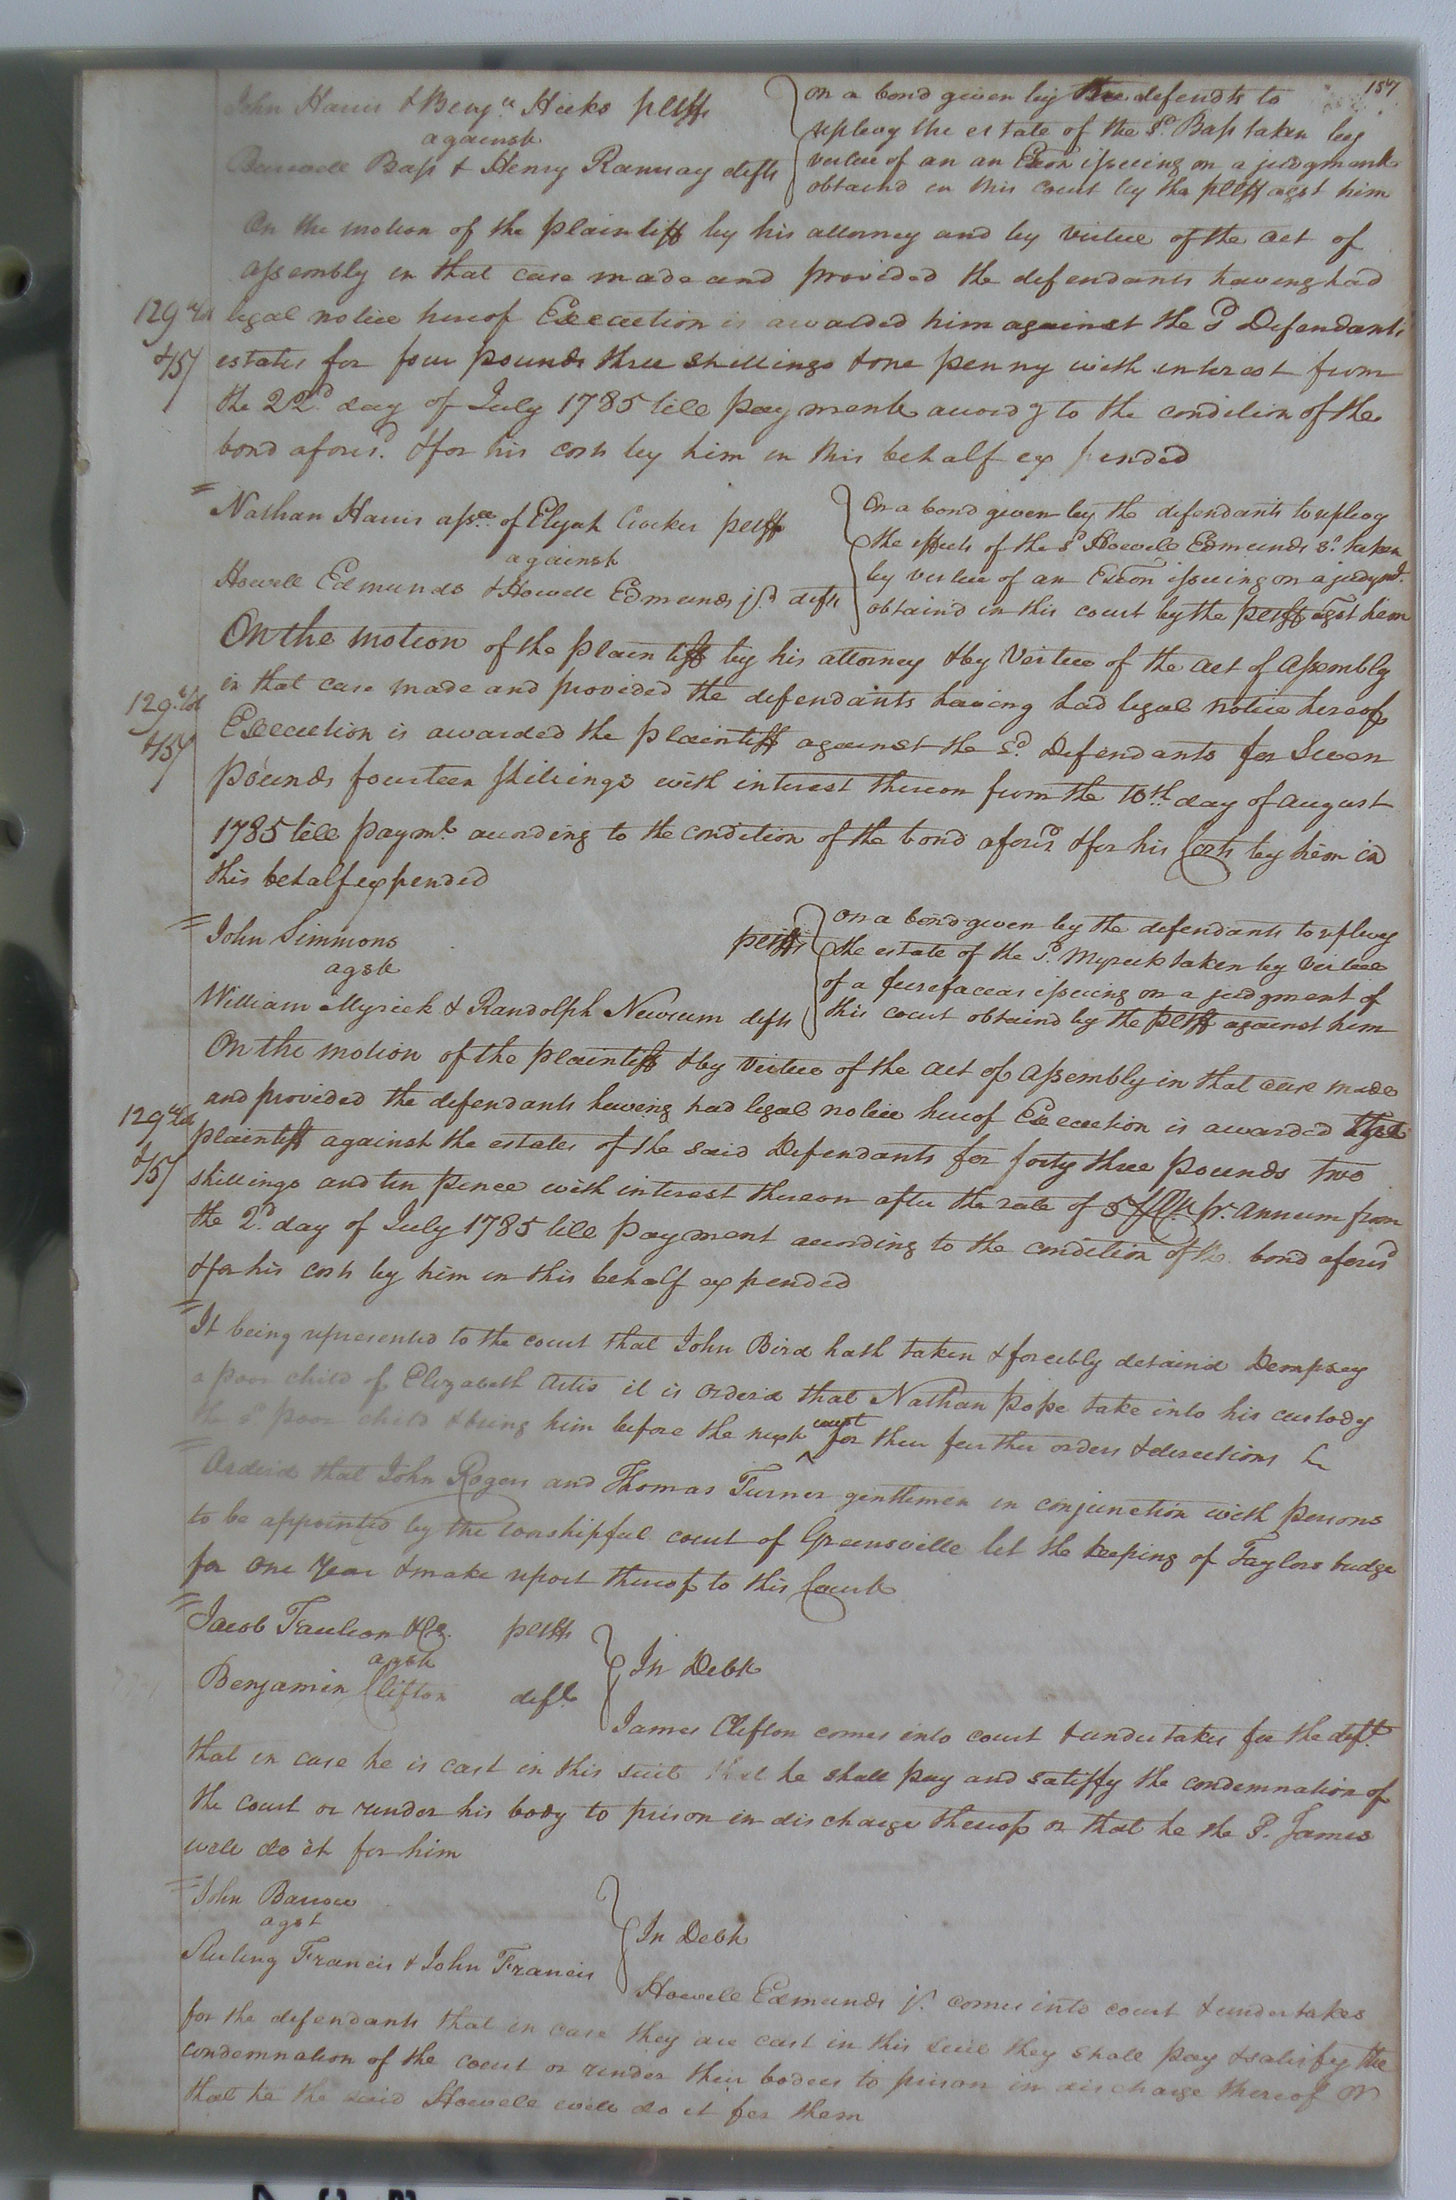 157
John Harris & Benjn. Hicks pltffs
against
Burwell Bass & Henry Ramsay defts
on a bond given by the defendts to
replevy the estate of the sd. Bass taken by
vertue of an an Exon issueing on a judgment
obtaind in this court by the pltff agst him
On the motion of the plaintiff by his attorney and by virtue of the act of
assembly in that case made and provided the defendants having had
legal notice hereof Execution is awarded him against the sd Defendants
estates for four pounds three shillings & one penny with interest from
the 22d. day of July 1785 till payment accordg to the condition of the
bond aforesd. & for his costs by him in this behalf expended
129
&15/
Nathan Harris assee. of Elijah Crocker pltff
against
Howell Edmunds & Howell Edmunds jr. defts
On a bond given by the defendants to replevy
the effects of the sd Howell Edmunds sr. taken
by vertue of an Exon issueing on a judgmt.
obtain'd in this court by the pltff agst him
On the motion of the plaintiff by his attorney & by Vertue of the act of Assembly
in that case made and provided the defendants having had legal notice hereof
Execution is awarded the plaintiff against the sd. Defendants for Seven
pounds fourteen shillings with interest thereon from the 10th. day of August
1785 till paymt. according to the condition of the bond aforesd. & for his Costs by him in
this behalf expended
129
&15/
John Simmons
agst
William Myrick & Randolph Newsum defts
pltffs
on a bond given by the defendants to replevy
the estate of the sd. Myrick taken by Vertue
of a fierefacias issueing on a judgment of
this court obtaind by the pltff against him
On the motion of the plaintiff & by Vertue of the act of Assembly in that case made
and provided the defendants having had legal notice hereof Execution is awarded the
plaintiff against the estates of the said Defendants for forty three pounds two
shillings and ten pence with interest thereon after the rate of 5 pr. annum from
the 2d. day of July 1785 till payment according to the condition of the bond aforesd
& for his costs by him in this behalf expended
129
&15/
It being represented to the court that John Bird hath taken & forcibly detain'd Dempsey
a poor child of Elizabeth Artis it is order'd that Nathan Pope take into his custody
the sd poor child & bring him before the next court for their further orders & directions
Order'd that John Rogers and Thomas Turner gentlemen in conjunction with persons
to be appointed by the worshipful court of Greensville let the keeping of Taylors bridge
for one Year & make report thereof to this Court
Jacob Faulcon & Co. pltffs
agst
Benjamin Clifton deft.
In Debt
James Clifton comes into court & undertakes for the deft.
that in case he is cast in this suit that he shall pay and satisfy the condemnation of
the court or render his body to prison in discharge thereof or that he the sd. James
will do it for him
John Barrow
agst
Sterling Francis & John Francis
In Debt
Howell Edmunds jr. comes into court & undertakes
for the defendants that in case they are cast in this suit they shall pay & satisfy the
condemnation of the court or render their bodies to prison in discharge thereof or
that he the said Howell will do it for them